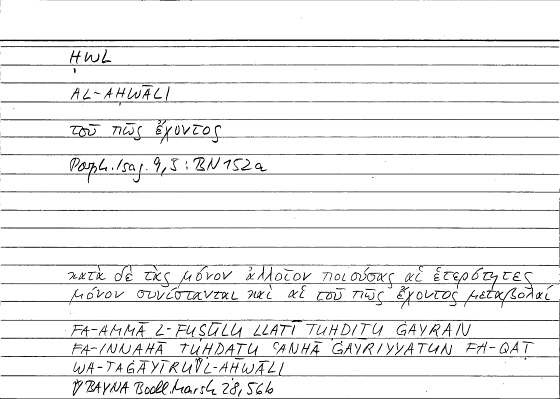 ḤWL
AL-AḤWĀLI
τοῦ πῶς ἔχοντος
Porph. Isag. 9, 5 : BN 152a
κατὰ δὲ τὰς μόνον ἀλλοῖον ποιούσας αἱ ἑτερότητες
μόνον συνίστανται καὶ αἱ τοῦ πῶς ἔχοντος μεταβολαί
FA-AMMĀ L-FUṢŪLU LLATĪ TUḤDITU ĠAYRAN
FA-INNAHĀ TUḤDATU ʿANHĀ ĠAYRIYYATUN FA-QAṬ
WA-TAĠĀYIRU L-AḤWĀLI
BAYNA Bodl. Marsh 28, 56b